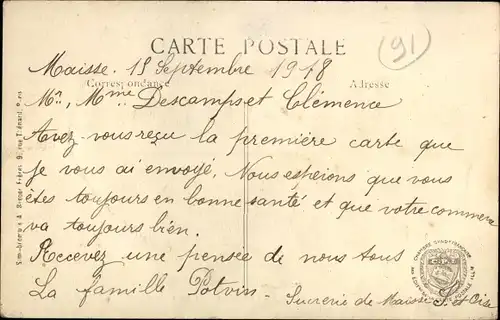 CARTE POSTALE
91
Maisse. 18 Septembre 1918
Correspondance
Adresse
Mr, Mme Descamps et Clémence
Avez vous reçu la première carte que
je vous ai envoyé. Nous espérions que vous
êtes toujours en bonne santé et que votre commerce
va toujours bien.
Recevez une pensée de nous tous
La famille Potvin
Sucrerie de Maisse S. et Oise